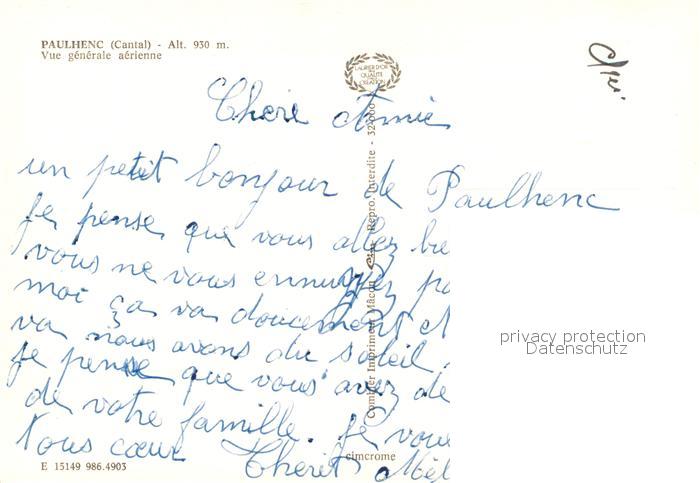 PAULHENC (Cantal) - Alt. 930 m.
Vue générale aérienne
LAURIER D'OR
QUALITÉ
CRÉATION
Chere Amie
un petit bonjour de Paulhenc
je pense que vous allez bie
vous ne vous ennuyez pa
moi ça va doucement et
va nous avons du soleil.
je pense que vous avez de
de votre famille. je vous
tous cœur Theret
Combier Imprimeur Mâcon - Repro. Interdite - 32.000
privacy protection
Datenschutz
cimcrome
E 15149 986.4903